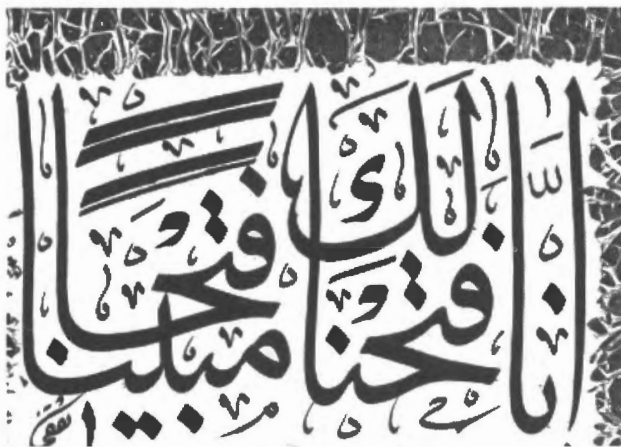 انّا فتحنا لك فتحاً مبيناً